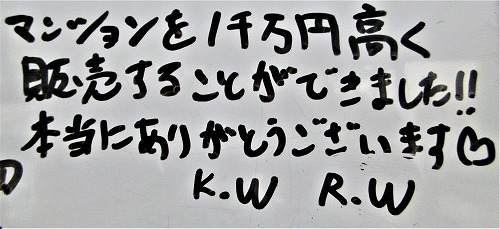 マンションを1千万円高く
販売することができました!!
本当にありがとうございます♡
K.W R.W